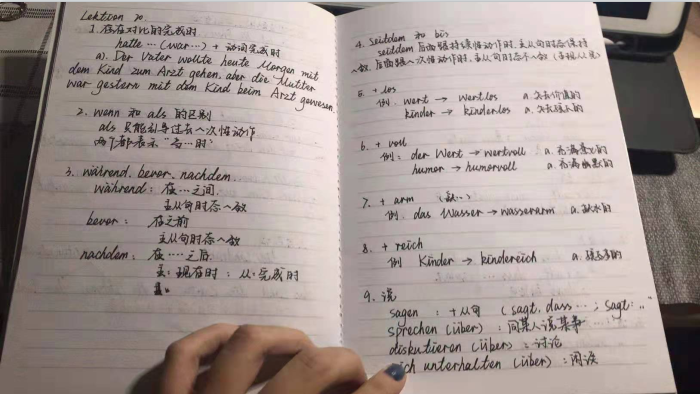 Lektion 20
1. 存在对比的完成时
hatte … (war …) + 动词完成时
a). Der Vater wollte heute Morgen mit
dem Kind zum Arzt gehen, aber die Mutter
war gestern mit dem Kind beim Arzt gewesen.
2. wann 和 als 的区别
als 只能引导过去一次性动作
两个都表示 "当…时"
3. während, bevor, nachdem
während: 在…之间,
主从句时态一致
bevor: 在之前
主从句时态一致
nachdem: 在…之后,
主: 现在时: 从: 完成时
4. seitdem 和 bis
seitdem 后面跟持续性动作时, 主从句时态保持
一致, 后面跟一次性动作时, 主从句时态不一致
5. + los
例: wert → wertlos a. 失去价值的
kinder → kinderlos a.
6. + voll
例: der Wert → wertvoll a. 充满意义的
humor → humorvoll a. 充满幽默的
7. + arm (缺…)
例. das Wasser → wasserarm a. 缺水的
8. + reich
例 Kinder → kindereich a. 孩子多的
9. 说
sagen : + 从句 ( sagt, dass … ; sagt: "…"
sprechen (über) : 同某人说某事
diskutieren (über) : 讨论
sich unterhalten (über) : 闲谈